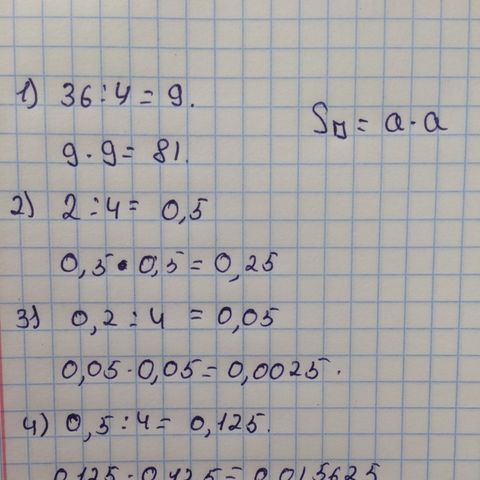 1) 36:4 = 9.
S□ = a·a
9·9 = 81.
2) 2:4 = 0,5
0,5·0,5 = 0,25
3) 0,2:4 = 0,05
0,05·0,05 = 0,0025.
4) 0,5:4 = 0,125.
0,125·0,125 = 0,015625